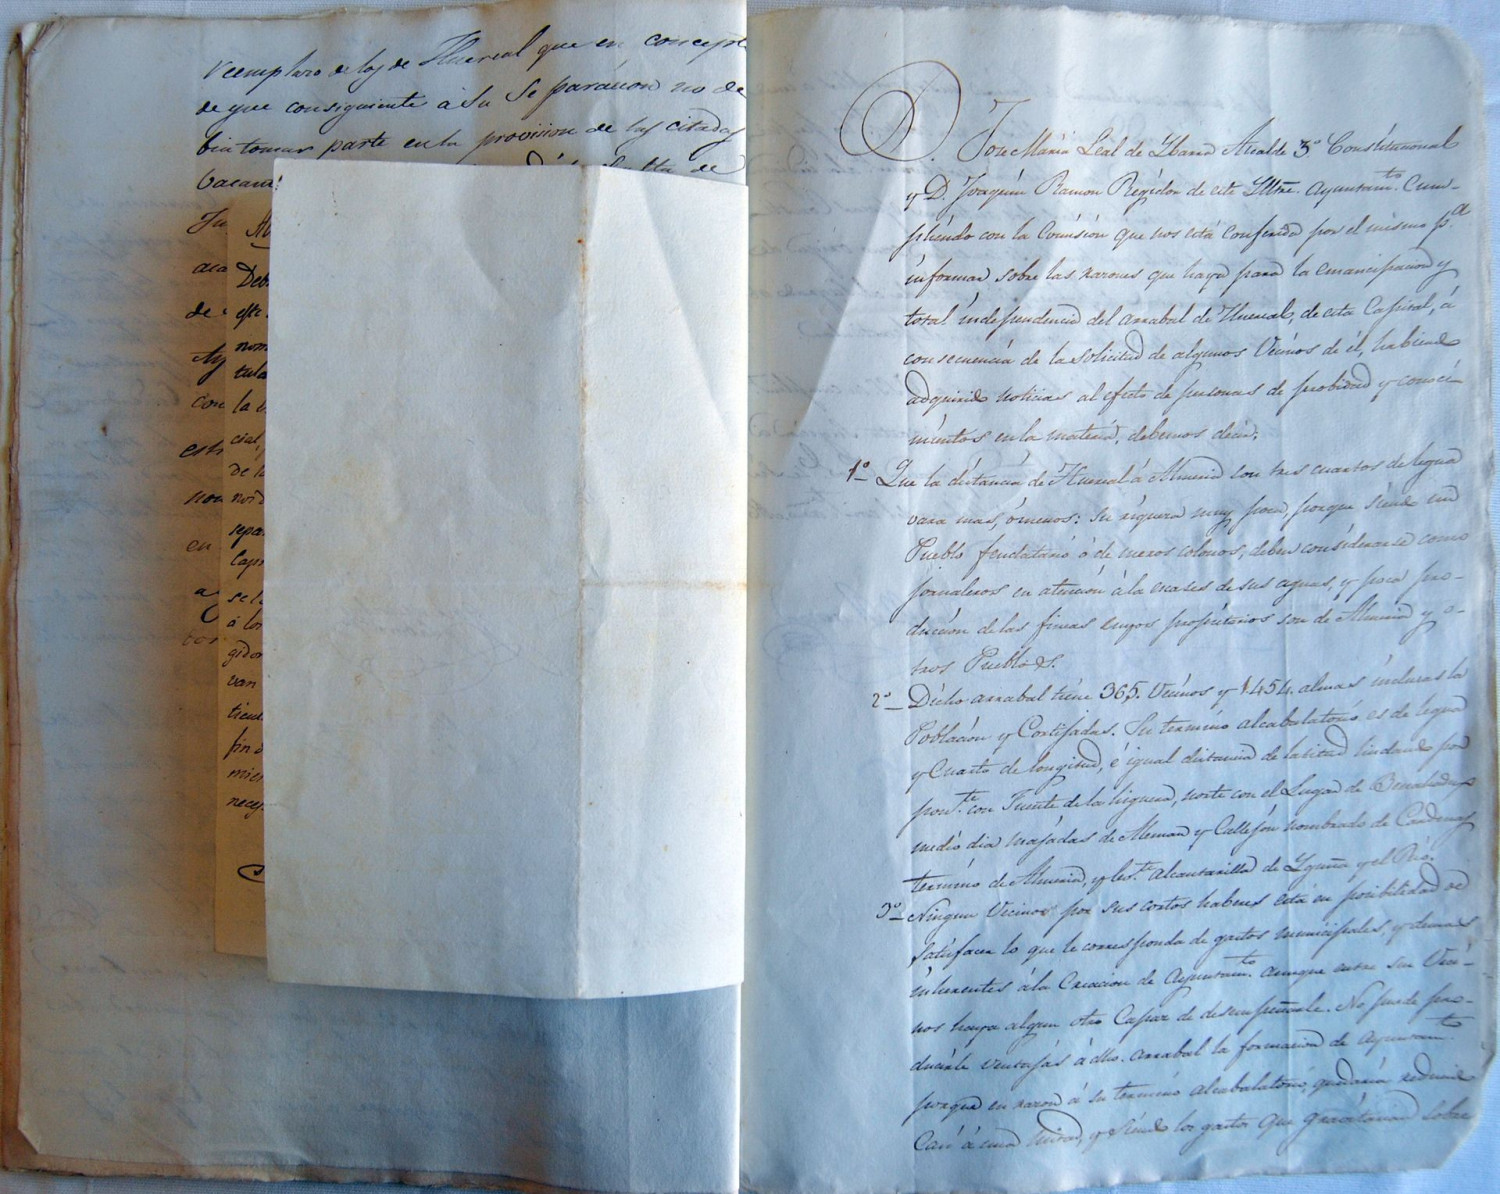 reemplazo de los de Huercal que en concepto
de que consiguiente á su separacion no de
bia tomar parte en la provision de las citadas
Vacan
Ju
aca
de
Ay
con
est
non
en
a
tor
Debi
este
nom
tula
la
cial,
de la
nord
sepa
Capi
se l
á los
gidor
van
tiend
fin d
mien
neces
D. Jose Maria Leal de Ibarra Alcalde 3º Constitucional
y D. Joaquin Ramon Regidor de este Yltre. Ayuntamto. Cum-
pliendo con la Comision que nos está conferida por el mismo pa.
informar sobre las razones que haya para la emancipacion y
total independencia del arrabal de Huercal, de esta Capital, á
consecuencia de la solicitud de algunos Vecinos de él, habiendo
adquirido noticias al efecto de personas de probidad y conoci-
mientos en la materia, debemos decir.
1º Que la distancia de Huercal á Almeria son tres cuartos de legua
vara mas, ó menos: su riqueza muy poca, porque siendo un
Pueblo feudatario ó de meros colonos, deben considerarse como
jornaleros en atencion á la escases de sus aguas, y poca pro-
duccion de las fincas cuyos propietarios son de Almeria y o-
tros Pueblos.
2º Dicho arrabal tiene 365. Vecinos y 1454. almas inclusas la
Poblacion y Cortijadas. Su termino alcabalatorio es de legua
y Cuarto de longitud, é igual distancia de latitud lindando por
pont.te con Fuente de la higuera, norte con el Lugar de Benahadux
medio dia majadas de Aleman y Callejon nombrado de Cardenas
termino de Almeria, y lev.te Alcantarilla de Yguña y el Rio.
3º Ningun Vecino por sus cortos haberes está en posibilidad de
satisfacer lo que le corresponda de gastos municipales, y demas
inherentes á la Creacion de Ayuntam.to aunque entre sus Veci-
nos haya algun otro Capaz de desempeñarle. No puede pro-
ducirle ventajas á dho. arrabal la formacion de Ayuntam.to
porque en razon á su termino alcabalatorio, quedaria reducido
casi á una mitad, y siendo los gastos que gravitarian sobre